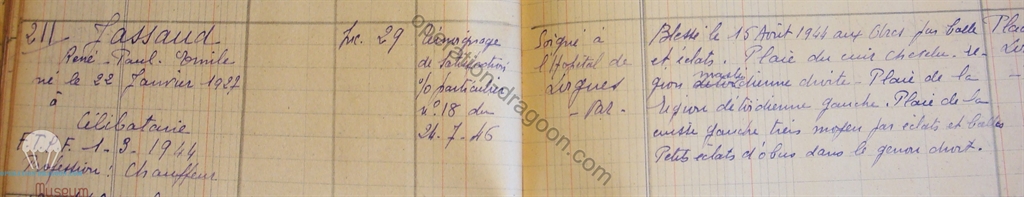 211 Jassaud
René Paul Emile
né le 22 Janvier 1927
à
Célibataire
F.T.P.F. 1-3-1944
Profession: Chauffeur
fre. 29
Témoignage
de satisfaction
o/o particulier
n° 18 du
24-7-46
Soigné à
l'hôpital de
Lorgues
- Var -
Blessé le 15 Août 1944 aux Arcs par balle
et éclats. Plaie du cuir chevelu. re-
gion droite - Plaie de la
région deltoïdienne gauche. Plaie de la
cuisse gauche tiers moyen par éclats et balles
Petits éclats d'obus dans le genou droit.
operation-dragoon.com
Museum